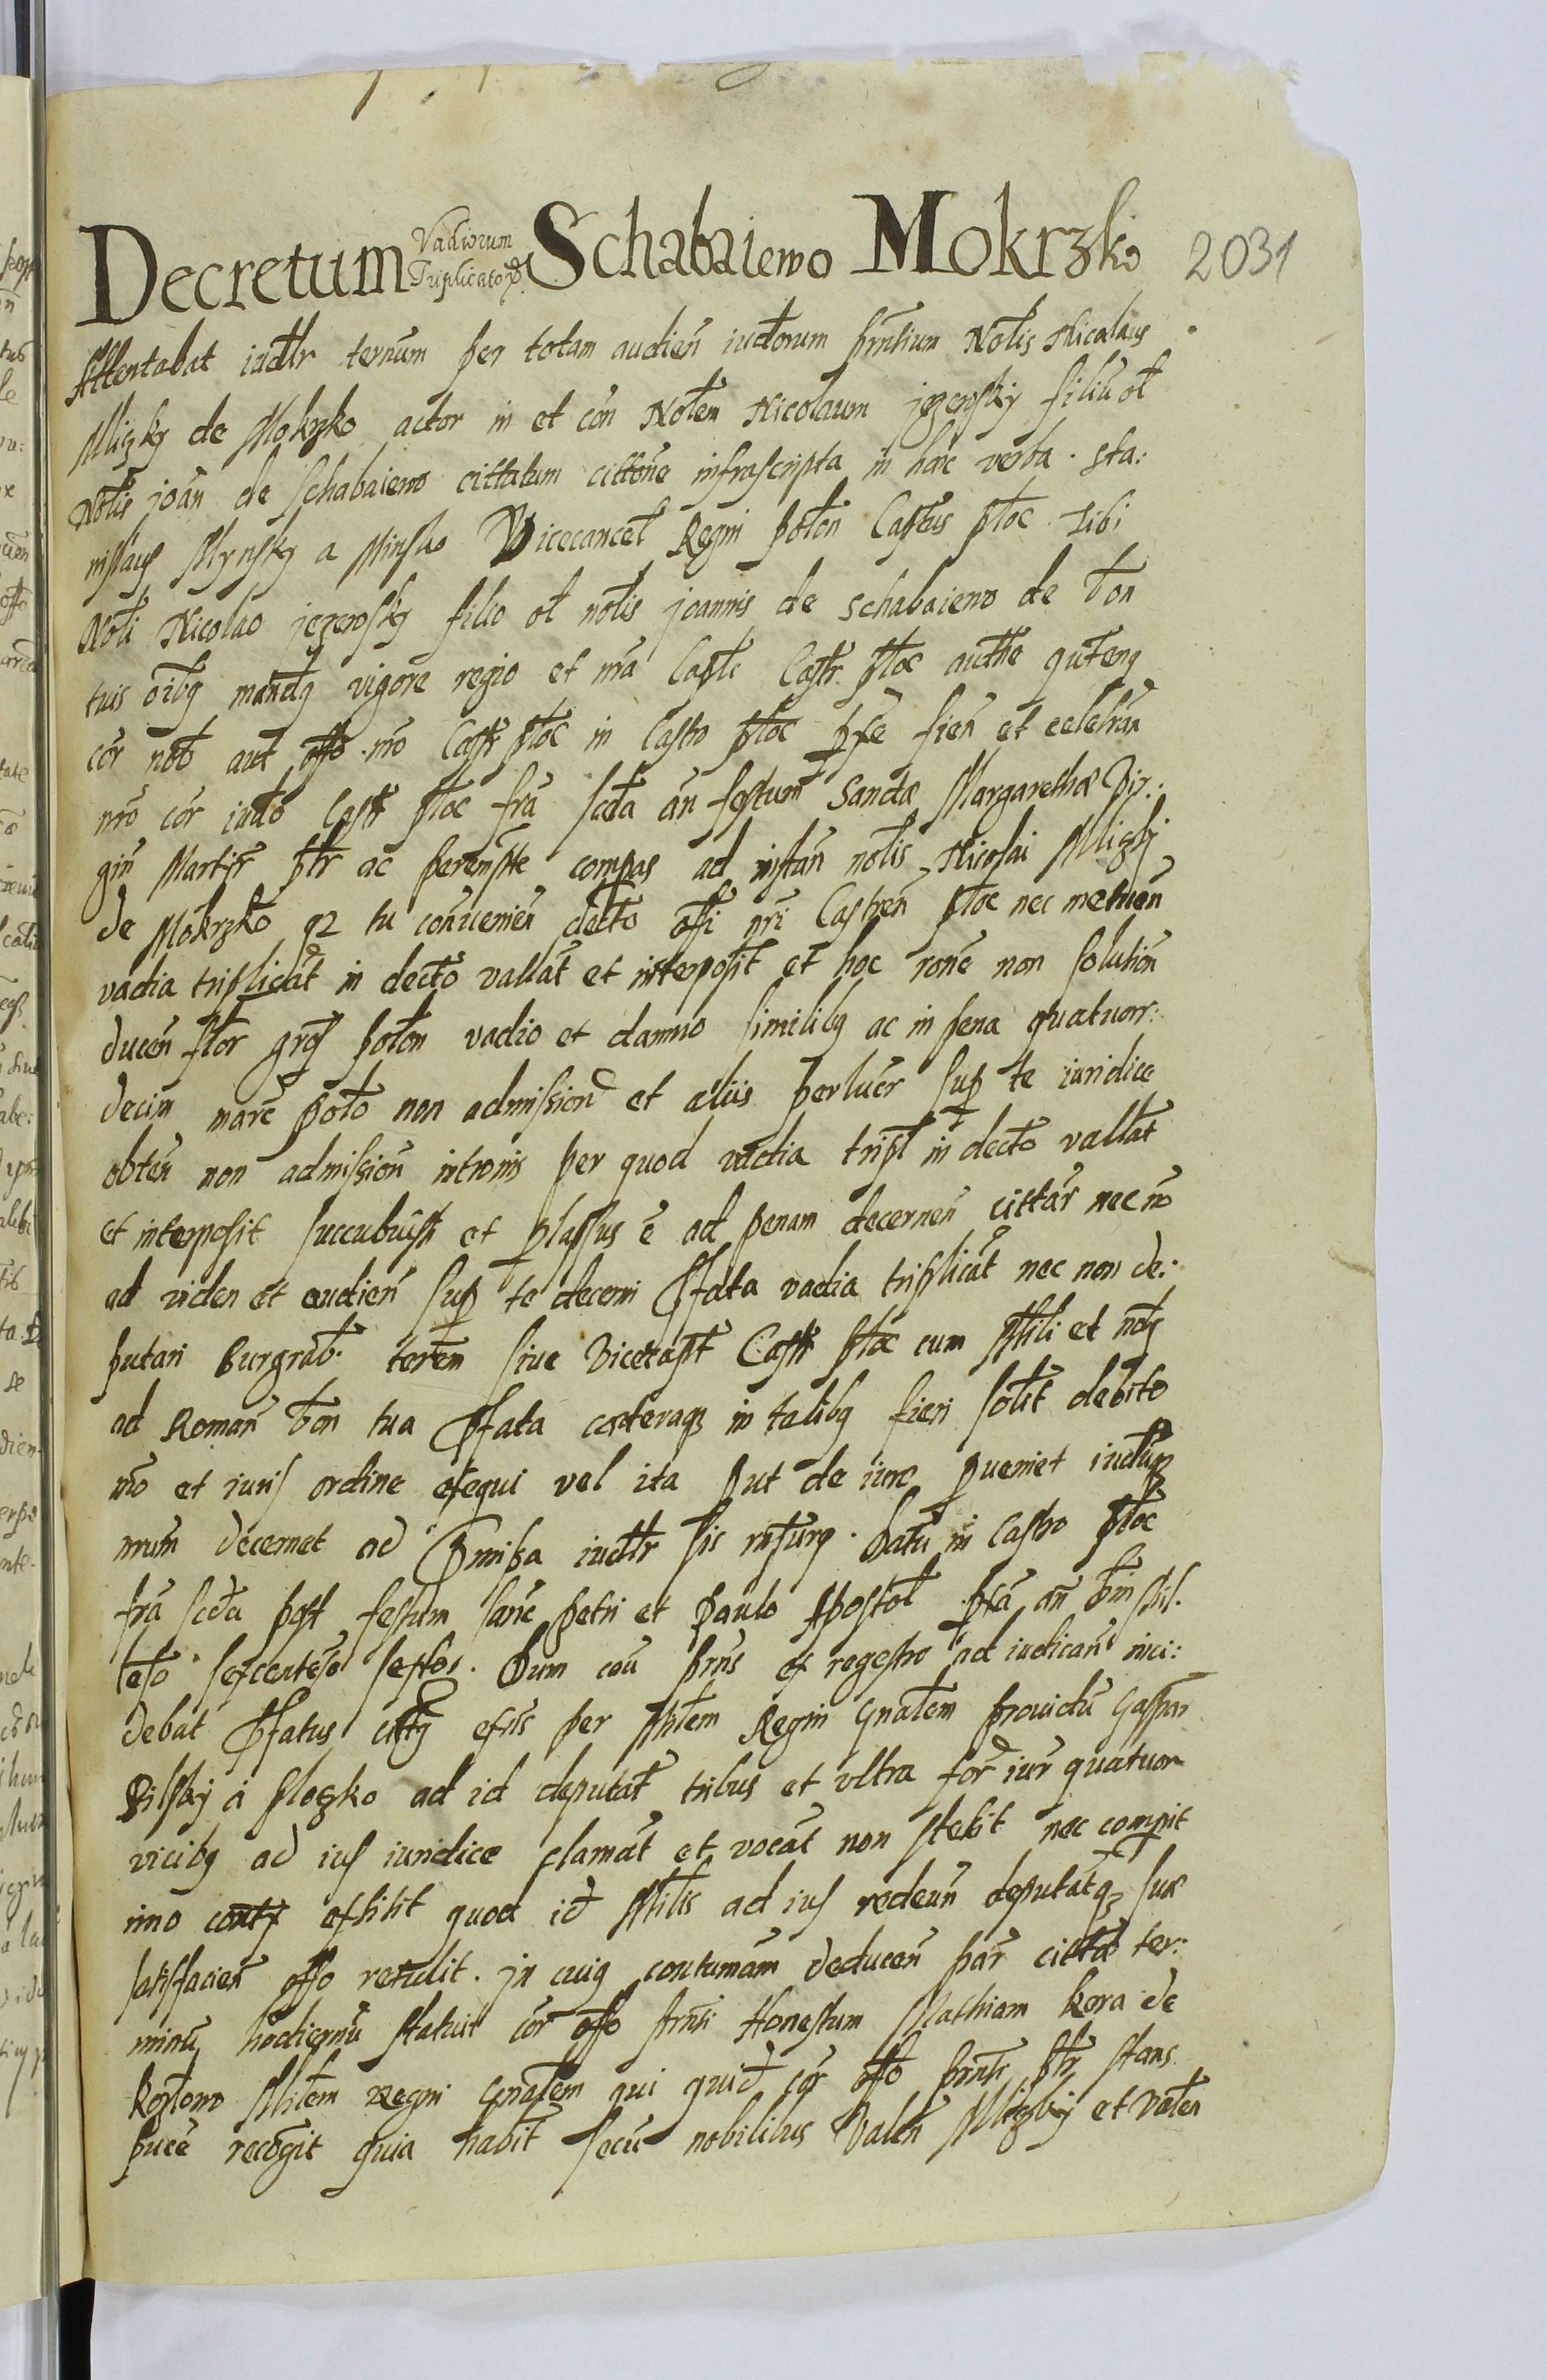 Decretum Vadiorum Triplicator Schabaiewo Mokrzko 2031
Attentabat iudtr ternum per totam audien iudtorum prntium Notis Nicolaus
Mlizky de Mokrzko actor in et con Notem Nicolaum jezersky filiu ol
Notis joan de Schabaiewo cittatum cittone infrascripta in haec verba. Sta:
nislaus Mynsky a Minsko Vicecancel Regni polon Captus ploc Tibi
Noti Nicolao jezersky filio ol notis joannis de Schabaiewo de bon
tuis oibq mandq vigore regio et nra Captli Castr ploc autthe quteng
cor nob aut offo nro Castr ploc in Castro ploc fien et celebran
nro cor iudo Castr ploc fra scda an festum Sanctae Margarethae Vir:
gin Martyr ptr ac peremptte compas ad instan notis Nicolai Mlizky
de Mokrzko qz tu conuenien decto offi nri Castren ploc nec metuen
vadia triplicat in decto vallat et interposit et hoc rone non solution
ducen flor gros polon vadio et damno similibq ac in pena quatuor:
decim marc polo non admission et aliis perlucr sup te iuridice
obten non admission intronis per quod vadia tripl in decto vallat
et interposit succubuisti et plapsus e ad penam decernen cittar nec no
ad viden et audien sup te decerni Pfata vadia triplicat nec non de:
putari Burgrab terren siue Vicecapt Castr ploc cum Mtili et nobq
ad Roman bon tua Pfata coeteraqz in talibq fieri solit debito
mo et iuris ordine exequi vel ita put de iure pueniet iudiuqz
nrum decernet ad Pmissa iudtr sis rnsurq. Datu in Castro ploc
fra scda post festum sanc petri et paulo Apostol pta an Dni mil.
leso sexcenteso sexto. Dum cou prns ex regestro ad iudican inci:
debat Pfatus citty exns per Mtlem Regni Gnalem prouidu Gaspar
Pilsky a plozko ad id deputat tribus et vltra for iur quatuor
vicibq ad ius iuridice clamat et vocat non stetit nec comprit
imo contx exstitit quod id Mtilis ad ius redeun deputatqz sux
satisfacien offo retulit. jn cuiq contumam deducen par cittta ter:
minu hodiernu statuit cor offo prnti Honestum Mathiam kora de
Mtilem Regni Gnalem qui quid cor offo prnti ptr stans
puce recogit quia habit secu nobilibus Valen Mlizky et Valen